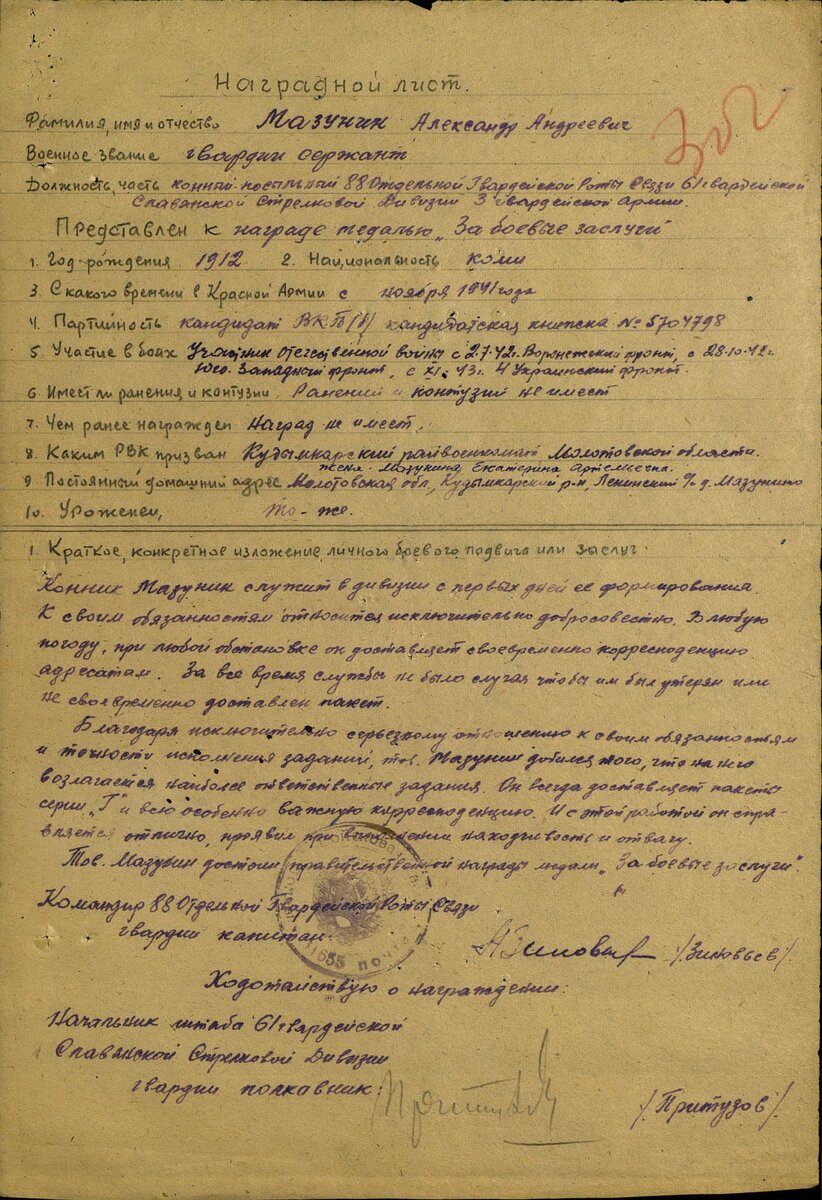 Наградной лист.
302
Фамилия, имя и отчество Мазунин Александр Андреевич
Военное звание гвардии сержант
Должность, часть конный посыльный 88 Отдельной Гвардейской Роты Связи 61 гвардейской
Славянской Стрелковой Дивизии 3 гвардейской Армии.
Представлен к награде медалью „За боевые заслуги"
1. Год рождения 1912 2. Национальность коми
3. С какого времени в Красной Армии с ноября 1941 года
4. Партийность кандидат ВКП(б) кандидатская книжка № 5704798
5. Участие в боях Участник отечественной войны с 2.7.42г. Воронежский фронт, с 28.10.42г
Юго-Западный фронт, с XI-43г. 4 Украинский фронт.
6. Имеет ли ранения и контузии Ранений и контузий не имеет
7. Чем ранее награжден наград не имеет.
8. Каким РВК призван Кудымкарский райвоенкомат Молотовской области.
жена - Мазунина Екатерина Артемьевна.
9 Постоянный домашний адрес Молотовская обл, Кудымкарский р-н, Ленинский с/с д. Мазунино
10. Уроженец, то-же.
1. Краткое, конкретное изложение личного боевого подвига или заслуг:
Конник Мазунин служит в дивизии с первых дней ее формирования.
К своим обязанностям относится исключительно добросовестно. В любую
погоду, при любой обстановке он доставляет своевременно корресподенцию
адресатам. За все время службы не было случая чтобы им был утерян или
не своевременно доставлен пакет.
Благодаря исключительно серьезному отношению к своим обязанностям
и точности исполнения заданий, тов. Мазунин добился того, что на него
возлагается наиболее ответственные задания. Он всегда доставляет пакеты
серии „Г" и всю особенно важную корресподенцию. И с этой работой он спра-
вляется отлично, проявил при выполнении находчивость и отвагу.
Тов. Мазунин достоин правительственной награды медали „За боевые заслуги".
Командир 88 Отдельной Гвардейской Роты Связи
гвардии капитан: /Зиновьев/
1655 почта
Ходотайствую о награждении:
Начальник штаба 61 гвардейской
Славянской Стрелковой Дивизии
гвардии полкавник: /Притузов/